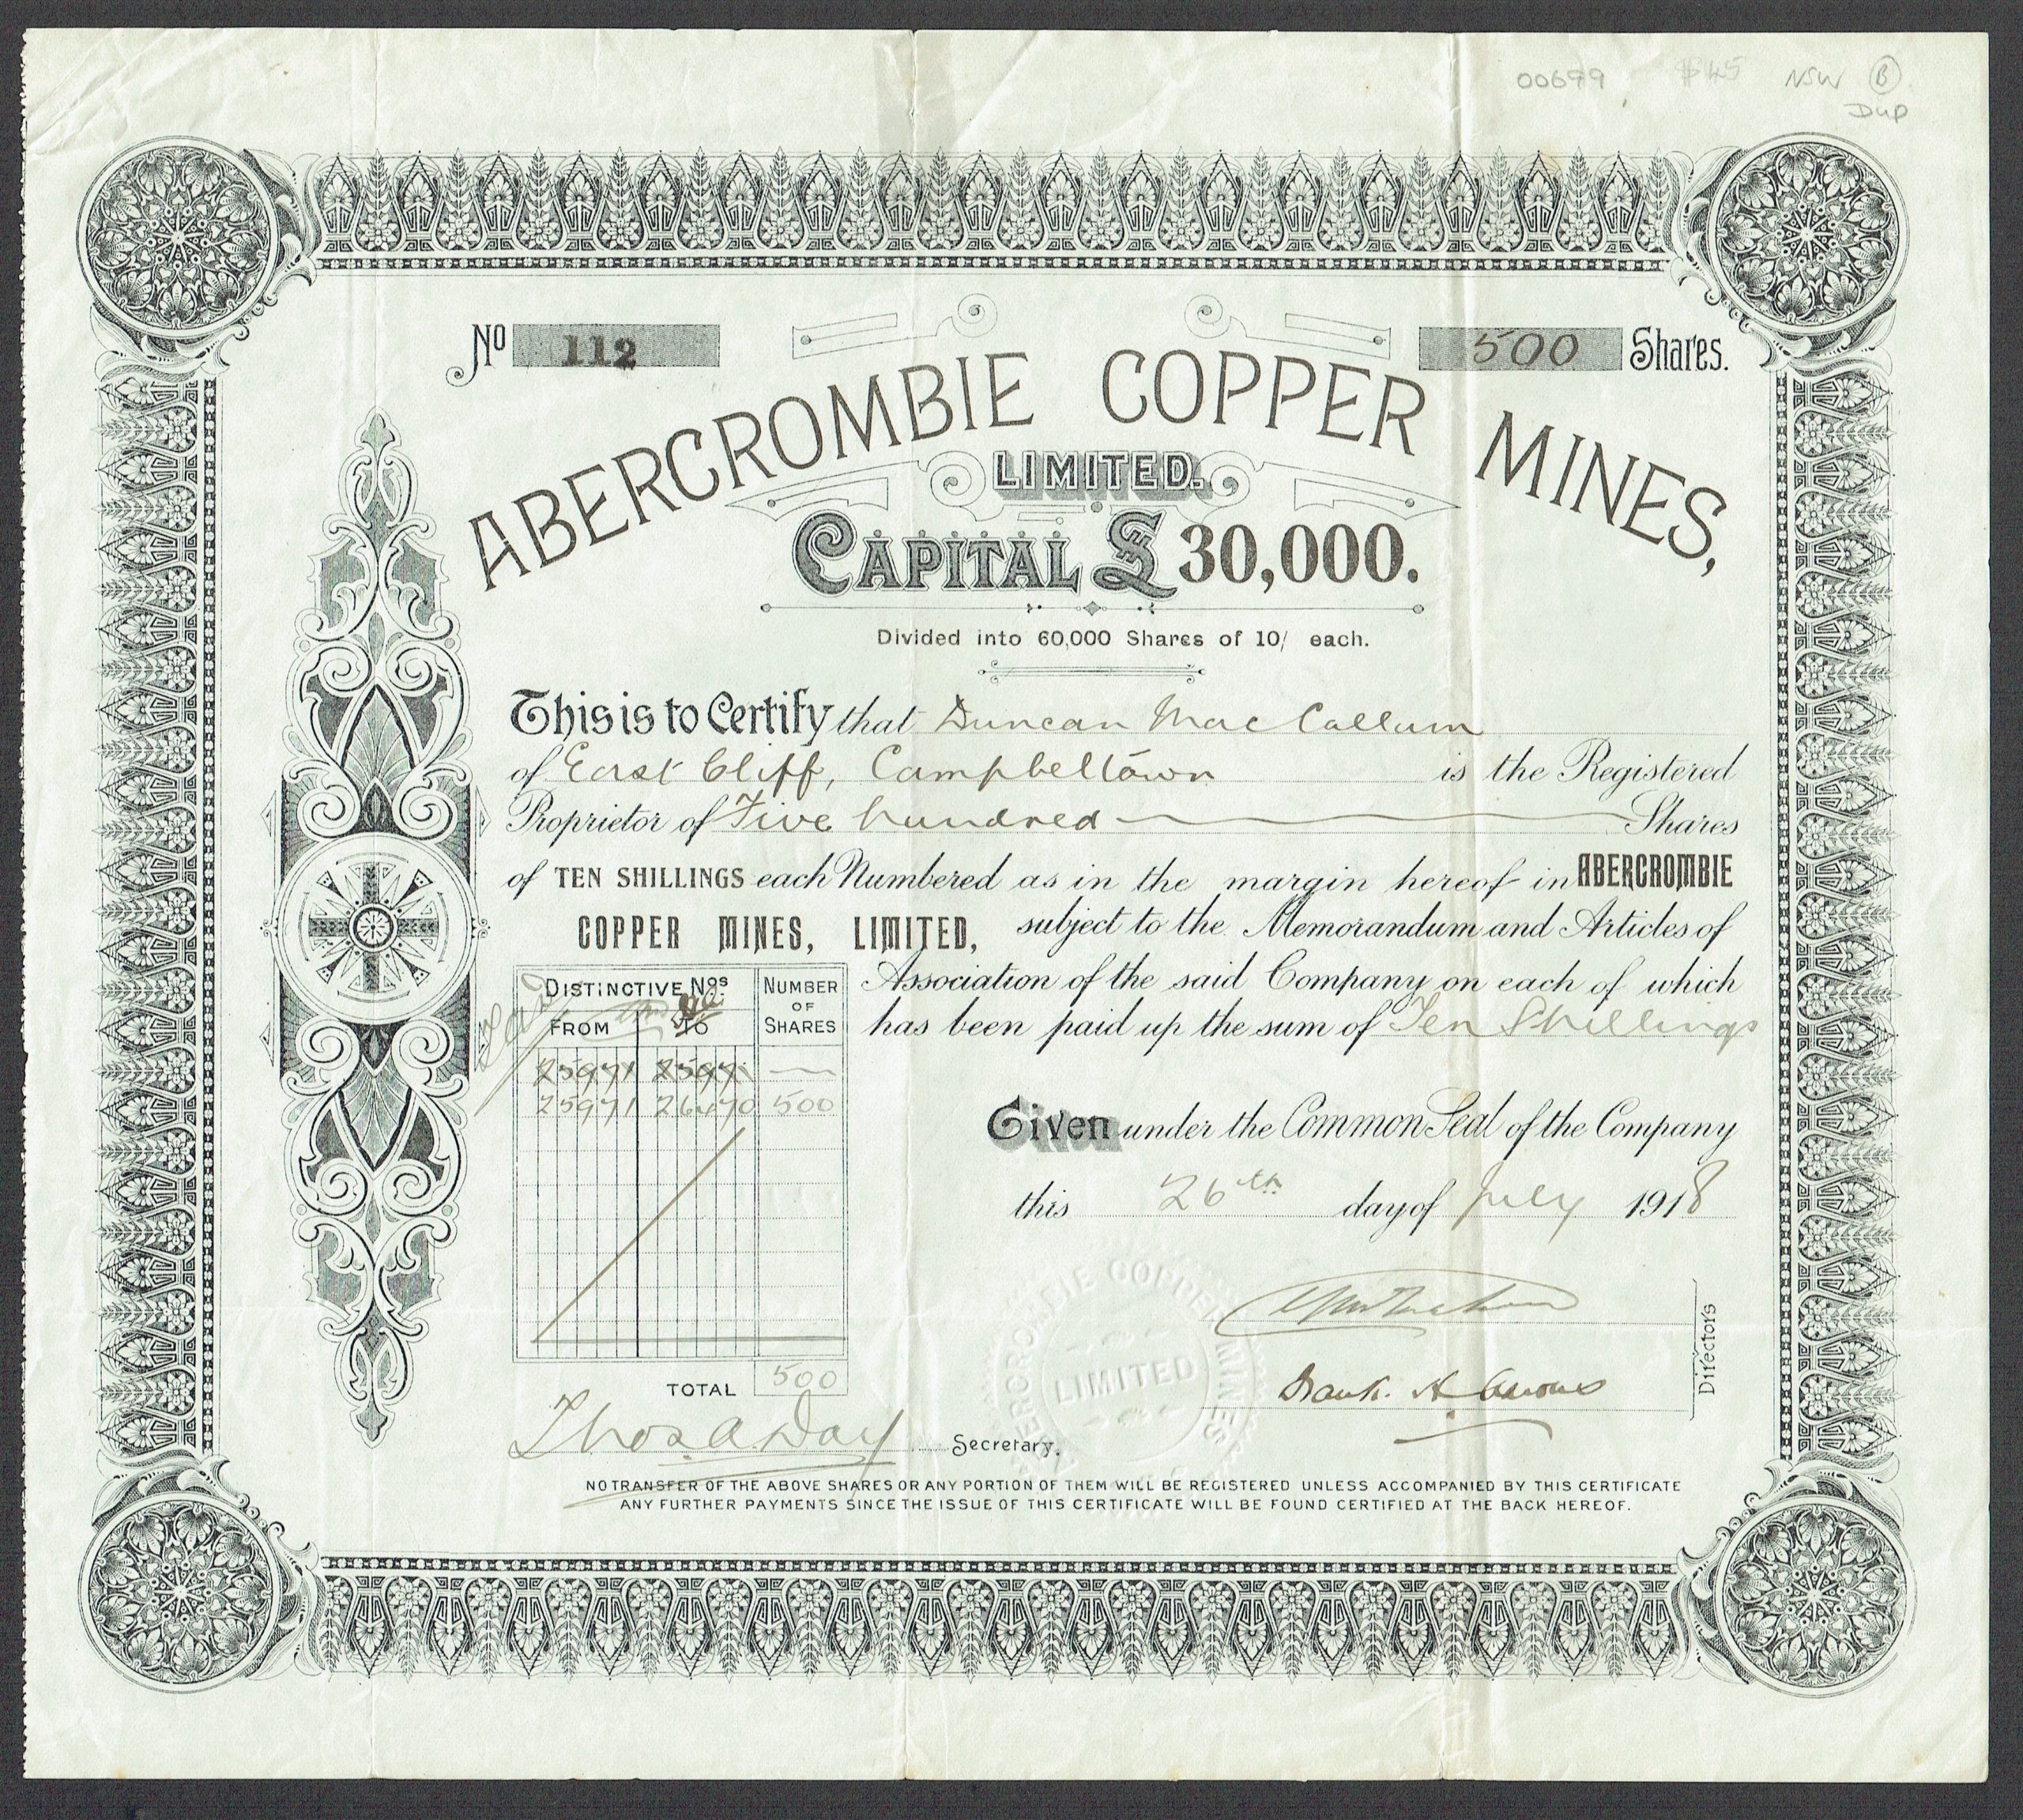 00699 $45 NSW B
Dup
No 112
500 Shares.
ABERCROMBIE COPPER MINES,
LIMITED.
CAPITAL £ 30,000.
Divided into 60,000 Shares of 10/ each.
This is to Certify that Duncan MacCallum
of East Cliff, Campbeltown is the Registered
Proprietor of Five hundred Shares
of TEN SHILLINGS each Numbered as in the margin hereof in ABERCROMBIE
COPPER MINES, LIMITED, subject to the Memorandum and Articles of
Association of the said Company on each of which
has been paid up the sum of Ten Shillings
DISTINCTIVE Nos NUMBER OF SHARES
FROM TO
25971 26470 500
TOTAL 500
Given under the Common Seal of the Company
this 26th day of July 1918
Directors
ABERCROMBIE COPPER MINES
LIMITED
Thos. A. Day Secretary.
NO TRANSFER OF THE ABOVE SHARES OR ANY PORTION OF THEM WILL BE REGISTERED UNLESS ACCOMPANIED BY THIS CERTIFICATE
ANY FURTHER PAYMENTS SINCE THE ISSUE OF THIS CERTIFICATE WILL BE FOUND CERTIFIED AT THE BACK HEREOF.